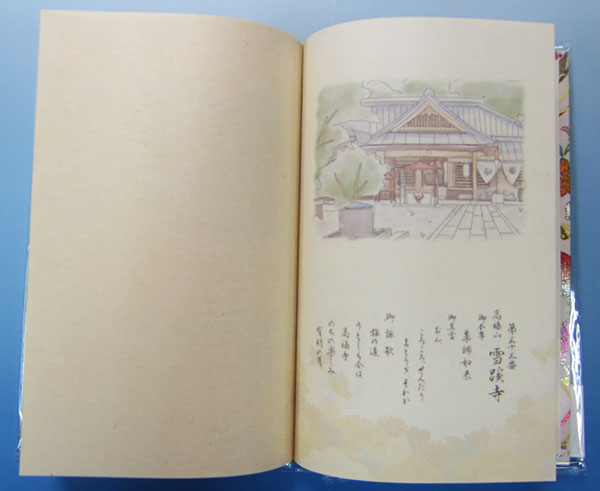 第三十三番
高福山 雪蹊寺
御本尊
薬師如来
御真言
おん
ころころ、せんだり、
まとうぎ、そわか
御詠歌
旅の道
うえしも今は
高福寺
のちの楽しみ
有明の月